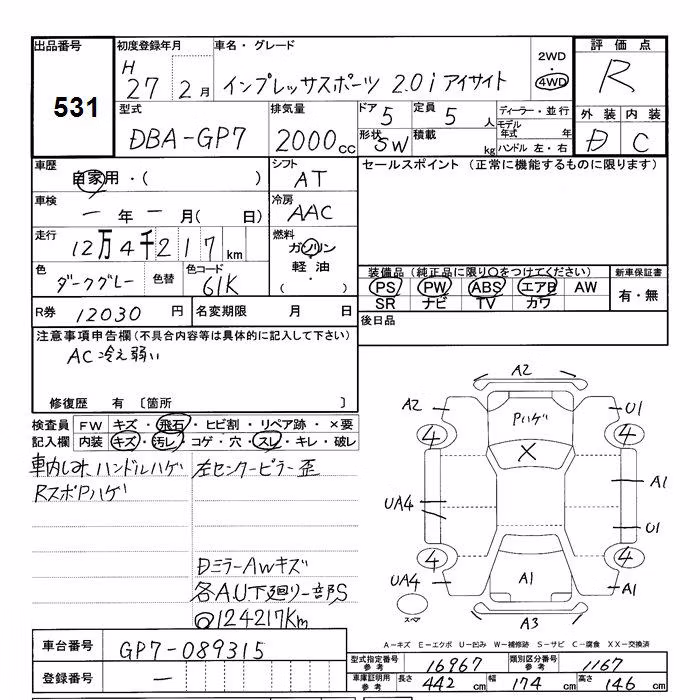 出品番号 531
初度登録年月 H 27 2月
車名・グレード インプレッサスポーツ 2.0i アイサイト
2WD・4WD
評価点 R
外装 D 内装 C
型式 DBA-GP7
排気量 2000cc
ドア 5 定員 5人
形状 SW 積載 kg
ディーラー・並行
モデル年式 年
ハンドル 左・右
車歴 自家用・( )
シフト AT
セールスポイント(正常に機能するものに限ります)
車検 一年一月( 日)
冷房 AAC
走行 12万4千217km
燃料 ガソリン 軽油・( )
色 ダークグレー 色替 色コード 61K
装備品(純正品に限り○をつけてください)
PS PW ABS エアB AW
SR ナビ TV カワ
新車保証書 有・無
R券 12030円 名変期限 月 日
後日品
注意事項申告欄(不具合内容等は具体的に記入して下さい)
AC冷え弱い
修復歴 有 〔箇所 〕
検査員記入欄 FW キズ・飛石・ヒビ割・リペア跡・×要
内装 キズ・汚レ・コゲ・穴・スレ・キレ・破レ
車内しみ ハンドルハゲ 左センターピラー歪
RスポPハゲ
DミラーAWキズ
各A.U.下廻り一部S
◎124217Km
A2
A2 Pハゲ U1
4 × 4
A1
UA4
U1
4 4
UA4 A1 A1
スペア A3
A-キズ E-エクボ U-凹み W-補修跡 S-サビ C-腐食 XX-交換済
車台番号 GP7-089315
登録番号 —
型式指定番号 参考 16967 類別区分番号 参考 1167
車庫証明用 参考 長さ 442cm 幅 174cm 高さ 146cm